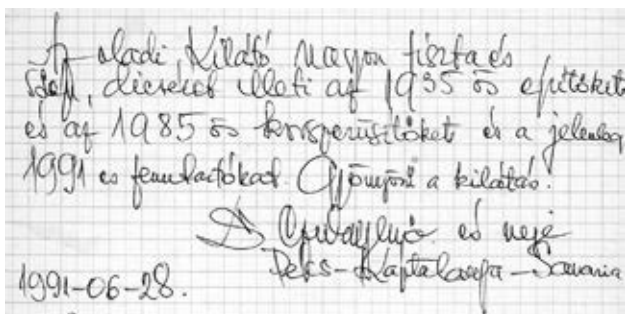 Az oladi Kilátó nagyon tiszta és
szép, dicséret illeti az 1935 ös építőket
és az 1985 ös korszerűsítőket és a jelenleg
1991 es fenntartókat. Gyönyörű a kilátás.
és neje
Pécs - Káptalanfa - Savaria
1991-06-28.